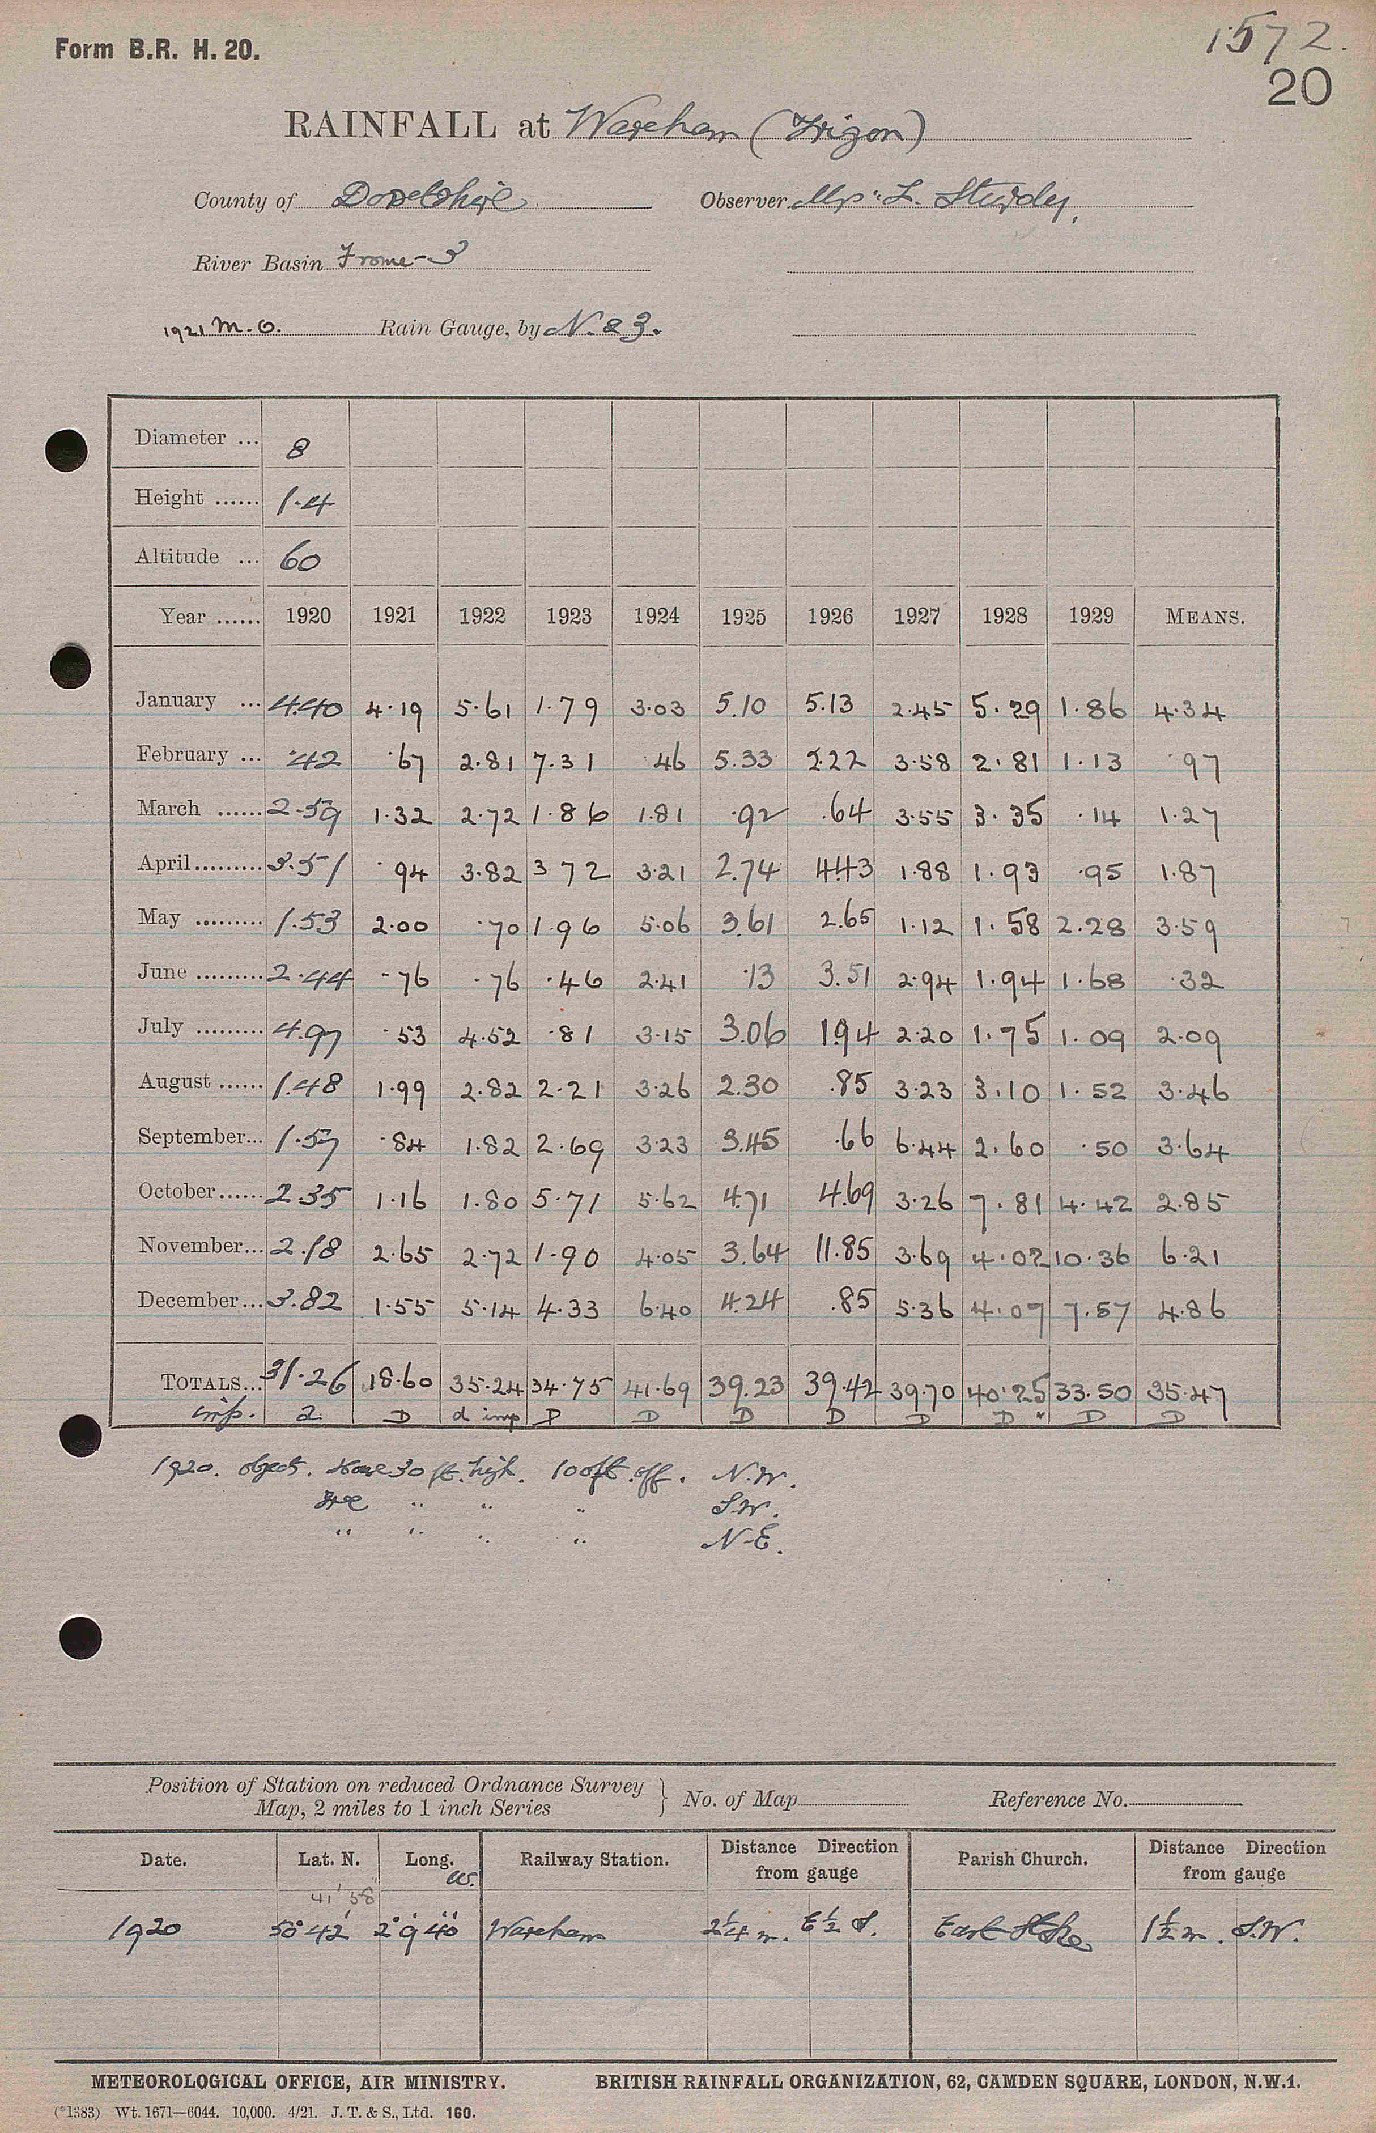 Form B.R. H. 20.
1572.
20
RAINFALL at Wareham (Trigon)
County of Dorsetshire Observer Mrs. L. Sturdy.
River Basin Frome-3
1921 M.O. Rain Gauge, by N. & Z.
Diameter ... 8
Height ...... 1.4
Altitude ... 60
Year ...... 1920 1921 1922 1923 1924 1925 1926 1927 1928 1929 MEANS.
January ... 4.40 4.19 5.61 1.79 3.03 5.10 5.13 2.45 5.29 1.86 4.34
February ... .42 .67 2.81 7.31 .46 5.33 2.22 3.58 2.81 1.13 .97
March ...... 2.59 1.32 2.72 1.86 1.81 .92 .64 3.55 3.35 .14 1.27
April ......... 3.51 .94 3.82 3 72 3.21 2.74 4.43 1.88 1.93 .95 1.87
May ......... 1.53 2.00 .70 1.96 5.06 3.61 2.65 1.12 1.58 2.28 3.59
June ......... 2.44 .76 .76 .46 2.41 .13 3.51 2.94 1.94 1.68 .32
July ......... 4.97 .53 4.52 .81 3.15 3.06 1.94 2.20 1.75 1.09 2.09
August ...... 1.48 1.99 2.82 2.21 3.26 2.30 .85 3.23 3.10 1.52 3.46
September... 1.57 .84 1.82 2.69 3.23 3.45 .66 6.44 2.60 .50 3.64
October...... 2.35 1.16 1.80 5.71 5.62 4.71 4.69 3.26 7.81 4.42 2.85
November... 2.18 2.65 2.72 1.90 4.05 3.64 11.85 3.69 4.02 10.36 6.21
December... 3.82 1.55 5.14 4.33 6.40 4.24 .85 5.36 4.07 7.57 4.86
TOTALS... 31.26 18.60 35.24 34.75 41.69 39.23 39.42 39.70 40.25 33.50 35.47
imp. a D d imp D D D D D D D D
1920. objects. House 30 ft. high. 100ft. off. N.W.
Tree " " " S.W.
" " " " N-E.
Position of Station on reduced Ordnance Survey
Map, 2 miles to 1 inch Series } No. of Map Reference No.
Date. Lat. N. Long. W. Railway Station. Distance Direction from gauge Parish Church. Distance Direction from gauge
41' 58
1920 50° 42' 2° 9' 40" Wareham 2¼ m. E ½ S. East Stoke 1½ m. S.W.
METEOROLOGICAL OFFICE, AIR MINISTRY. BRITISH RAINFALL ORGANIZATION, 62, CAMDEN SQUARE, LONDON, N.W.1.
(*1383) Wt. 1671—6044. 10,000. 4/21. J. T. & S., Ltd. 160.